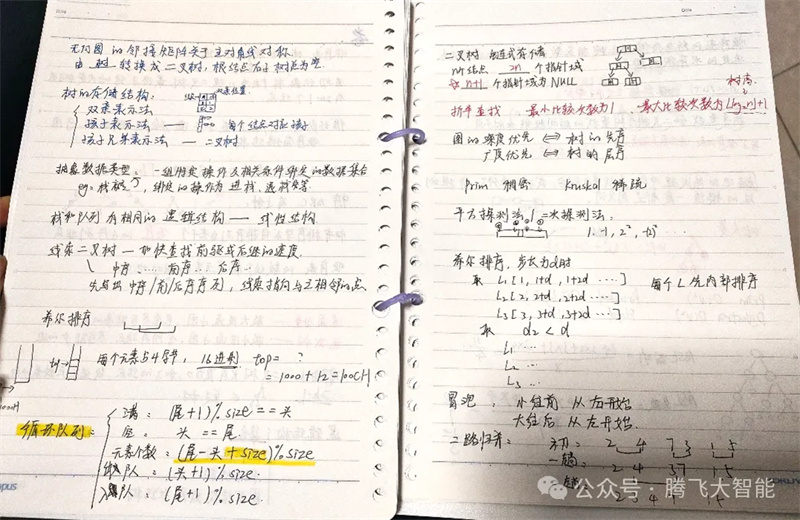 无向图的邻接矩阵关于主对角线对称.
由树转换成二叉树,根结点右子树总为空
树的存储结构:
双亲表示法
孩子表示法 —— 每个结点对应孩子
孩子兄弟表示法 —— 二叉树
抽象数据类型: 一组特定操作及相关条件约定的数据集合
eg:栈 绑定的操作为进栈,退栈等
栈和队列有相同的逻辑结构 —— 线性结构
线索二叉树 — 加快查找前驱或后继的速度.
中序 … 前序 … 后序 …
先写出中序/前/后序序列, 线索指向与之相邻的点
希尔排序
每个元素占4字节, 16进制 top= ?
=1000+12=100CH
循环队列:
满: (尾+1)%size == 头
空: 头 == 尾.
元素个数: (尾-头+size)%size
出队: (头+1)%size.
入队: (尾+1)%size.
二叉树 链式存储
n个结点 2n 个指针域
n+1 个指针域为NULL
树高
折半查找: 最小比较次数为1 最大比较次数为⌊log₂n⌋+1
图的深度优先 ⇔ 树的先序
广度优先 ⇔ 树的层序
Prim 稠密 Kruskal 稀疏
平方探测法 / 二次探测法:
1, -1, 2², -2²
希尔排序, 步长为d时
取 L₁[1, 1+d, 1+2d ……] 每个L先内部排序
L₂[2, 2+d, 2+2d ……]
L₃[3, 3+d, 3+2d ……]
取 d₂ < d
L₁ …
L₂ …
L₃ …
冒泡, 小在前 从右开始
大在后 从左开始.
二路归并: 初: 2 4 7 3 1 5
一趟: 2 4 3 7 1 5
公众号 · 腾飞大智能